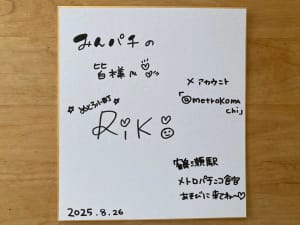 みんパチの
皆様へ♡
X アカウント
「@metrokoma
chi」
Riki
鶴瀬駅
メトロパチンコ会館
あそびに来てね〜♡
2025.8.26